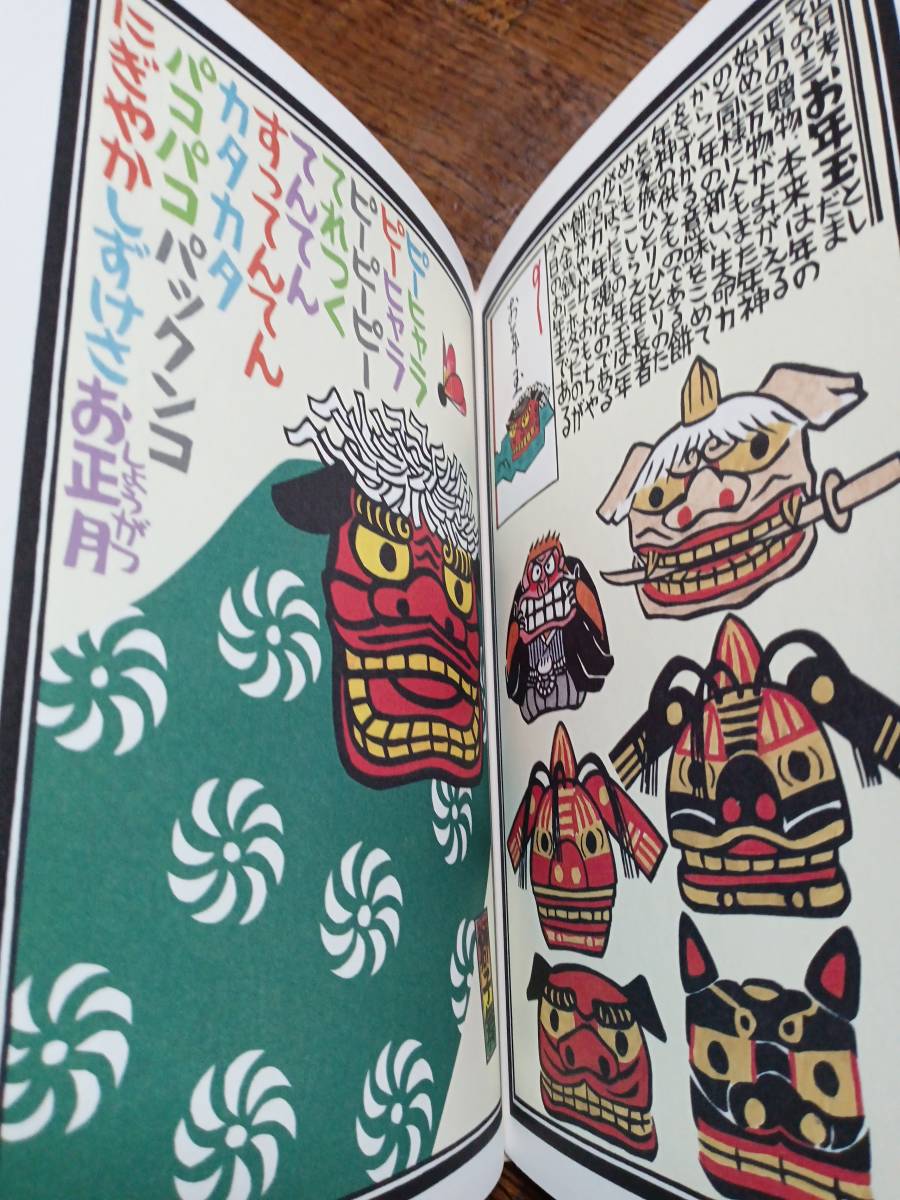 お年玉 としだま
正月の贈物 本来は年の
始めに万物がよみがえる
のと同様に人もまた年神
から一年の新しい生命力
をさずかる意味をこめて
年神の供えものである餅
を家族ひとりひとりのた
めにもこしらえ年長者
がくばったもの 年玉は年
年魂なのである
餅がやがておもちゃや
や金銭に変ったのが
今日のお年玉である
おとしだま
ピーヒャラ
ピーヒャラ
ピーピーピー
てれつく
てんてん
すってんてん
カタカタ
パコパコパックンコ
にぎやかしずけさお正月 しょうがつ